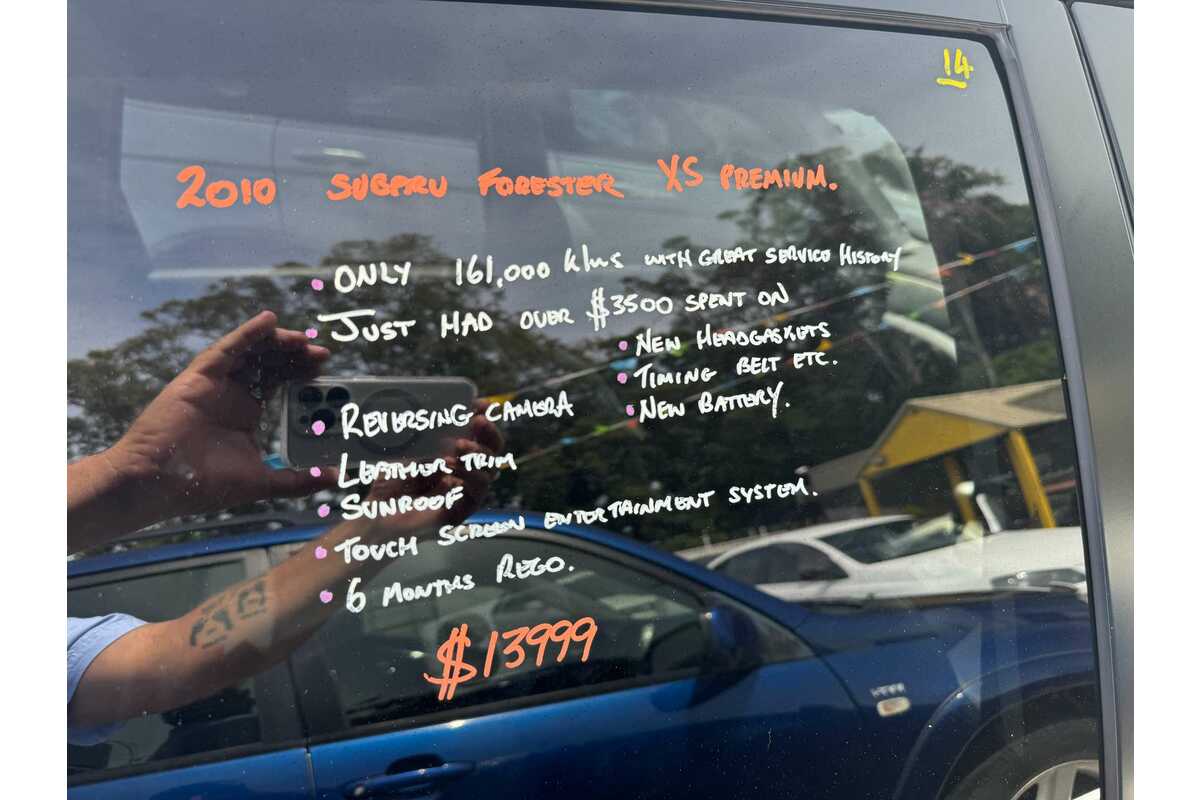 14
2010 SUBARU FORESTER XS PREMIUM.
• ONLY 161,000 klms WITH GREAT SERVICE HISTORY
• JUST HAD OVER $3500 SPENT ON
• NEW HEADGASKETS
• TIMING BELT ETC.
• NEW BATTERY.
• REVERSING CAMERA
• LEATHER TRIM
• SUNROOF
• TOUCH SCREEN ENTERTAINMENT SYSTEM.
• 6 MONTHS REGO.
$13999